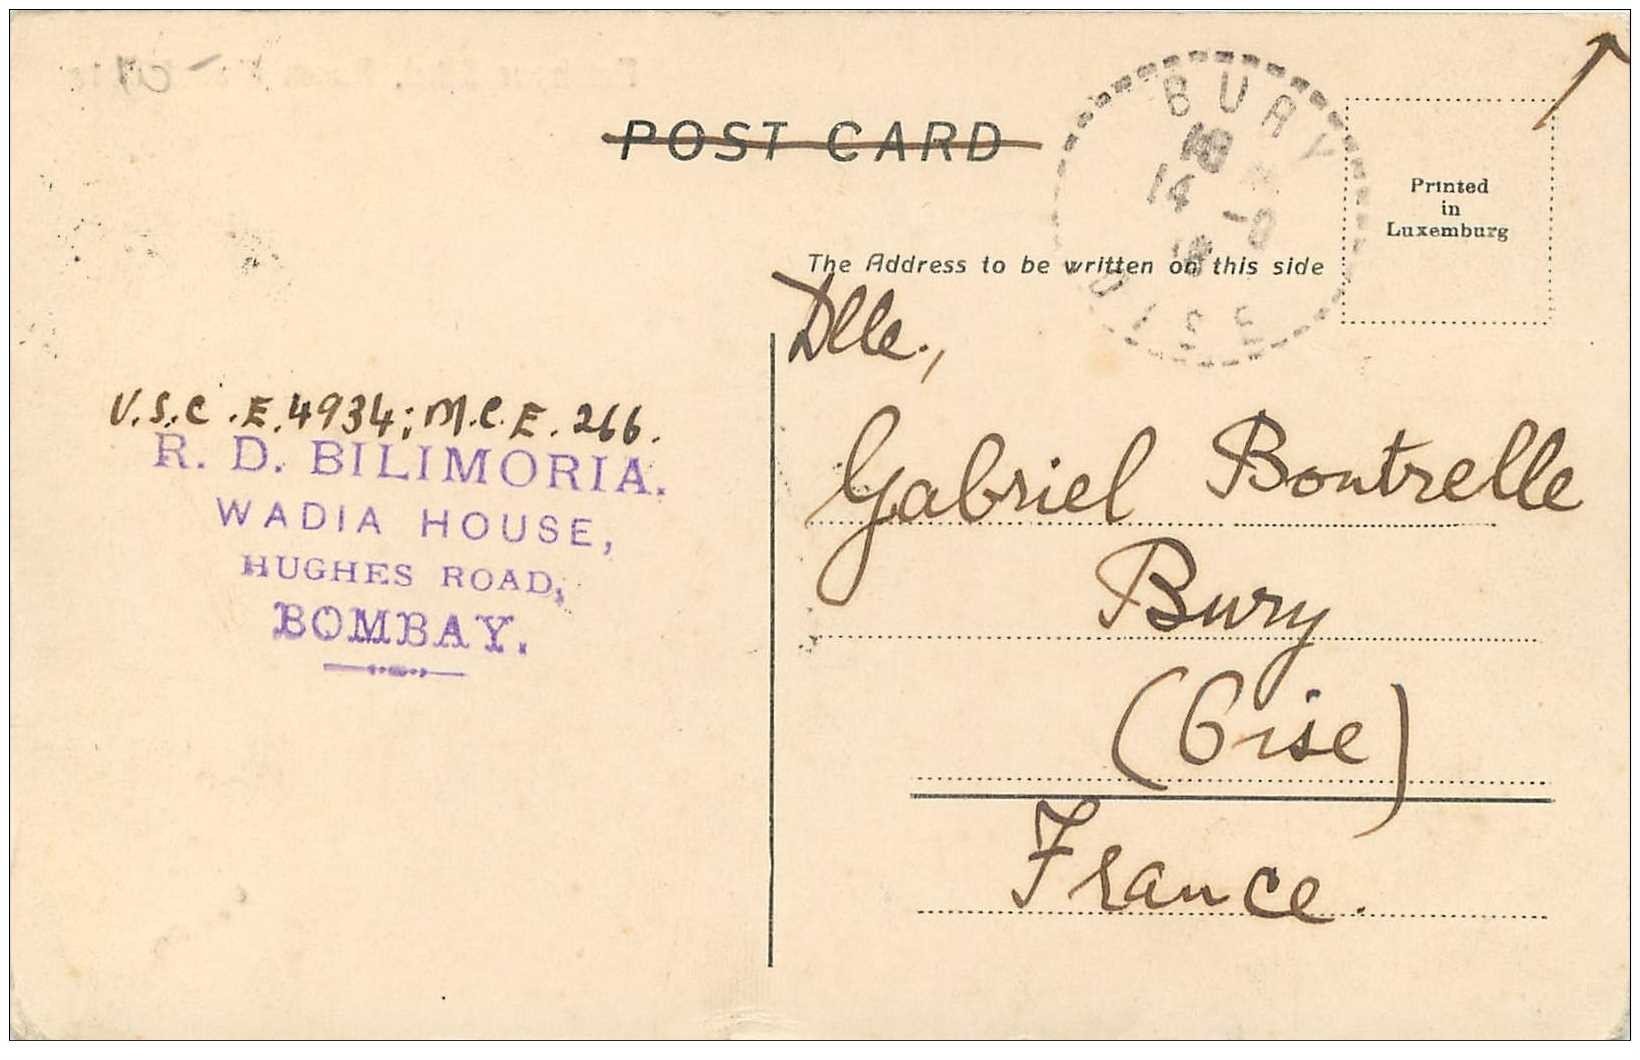 POST CARD
BURY
14
OISE
Printed
in
Luxemburg
The Address to be written on this side
Dlle.,
Gabriel Bontrelle
Bury
(Oise)
France.
V.S.C.E.4934; M.C.E. 266.
R. D. BILIMORIA.
WADIA HOUSE,
HUGHES ROAD,
BOMBAY.